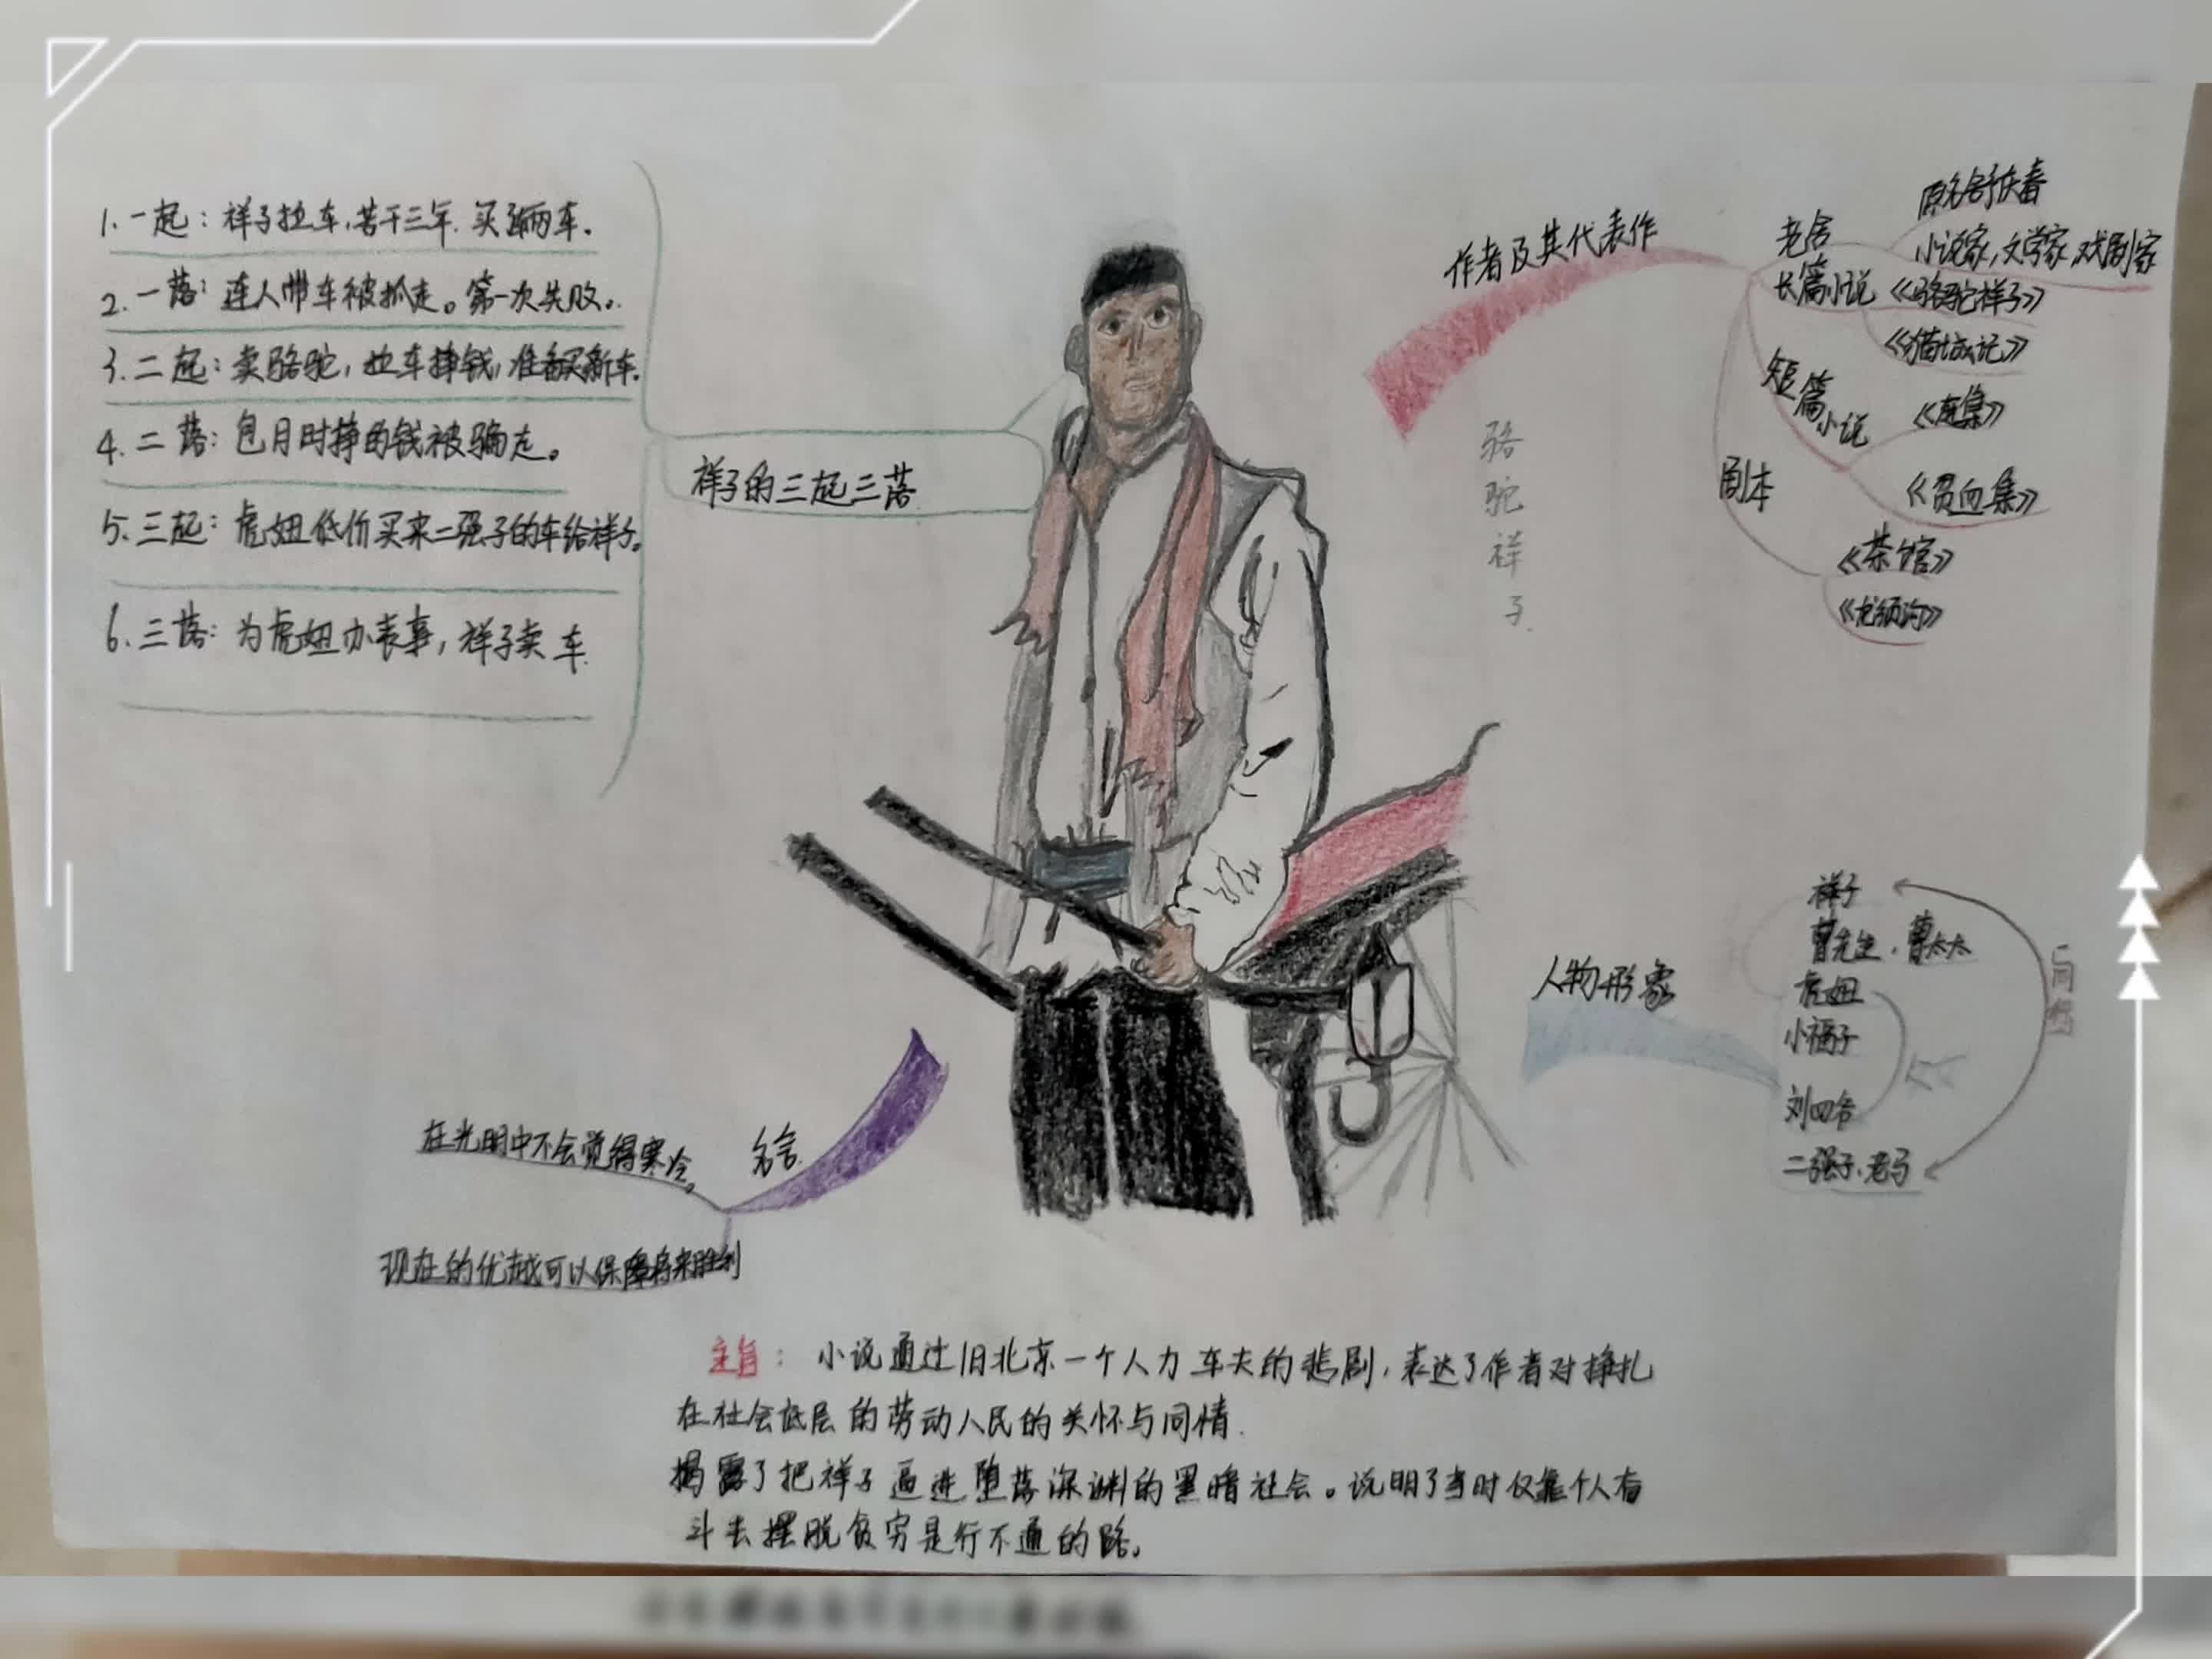 1.一起：祥子拉车,苦干三年.买辆车.
2.一落：连人带车被抓走。第一次失败.
3.二起：卖骆驼,拉车挣钱,准备买新车.
4.二落：包月时挣的钱被骗走。
5.三起：虎妞低价买来二强子的车给祥子.
6.三落：为虎妞办丧事,祥子卖车.
祥子的三起三落
骆驼祥子.
作者及其代表作
老舍
原名舒庆春
小说家,文学家,戏剧家
长篇小说《骆驼祥子》
《猫城记》
短篇小说
《赶集》
《贫血集》
剧本
《茶馆》
《龙须沟》
人物形象
祥子
曹先生.曹太太
虎妞
小福子
刘四爷
二强子.老马
同行
名言.
在光明中不会觉得寒冷。
现在的优越可以保障将来胜利
主旨：小说通过旧北京一个人力车夫的悲剧,表达了作者对挣扎
在社会底层的劳动人民的关怀与同情.
揭露了把祥子逼进堕落深渊的黑暗社会。说明了当时仅靠个人奋
斗去摆脱贫穷是行不通的路。